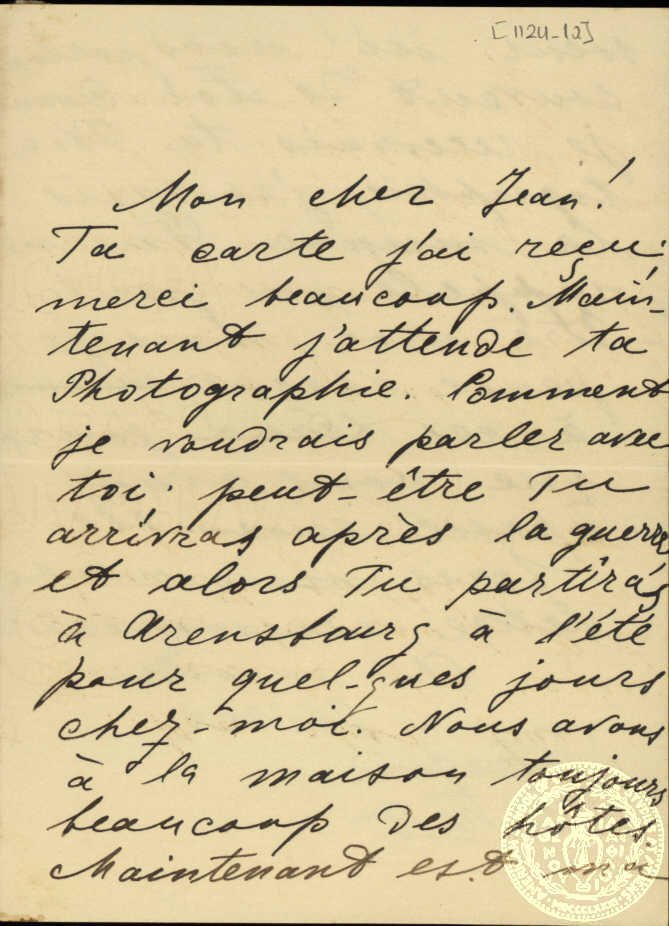 [1124-12]
Mon cher Jean!
Ta carte j'ai reçu:
merci beaucoup. Main-
tenant j'attende ta
Photographie. Comment
je voudrais parler avec
toi. peut-être Tu
arrívras après la guerre
et alors Tu partîrás
à Arensbourg à l'été
pour quel-ques jours
chez-moi. Nous avons
à la maison toujours
beaucoup des hôtes.
Maintenant est ma